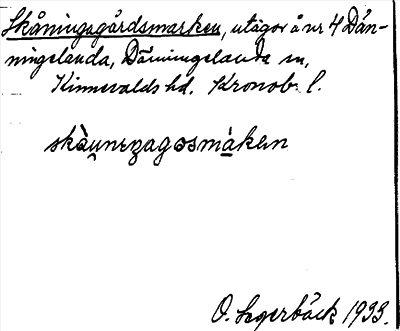 Skåningsgårdsmarken, utägor å nr 4 Dän-
ningelanda, Dänningelanda sn,
Kinnevalds hd. Kronob. l.
skàunıngagosmáken
O. Segerbäck 1933.